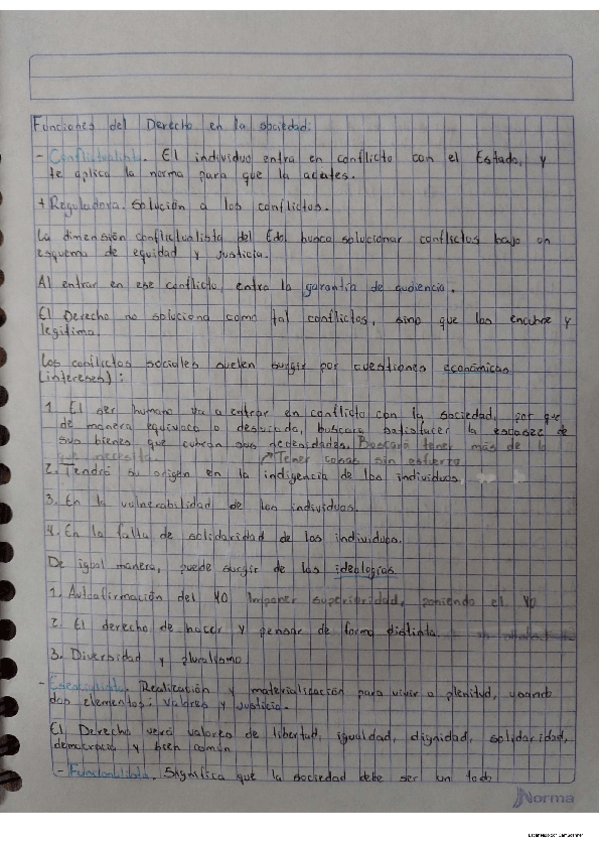 Funciones del Derecho en la sociedad:
- Conflictualista. El individuo entra en conflicto con el Estado, y
te aplica la norma para que la acates.
+ Reguladora. Solución a los conflictos.
La dimensión conflictualista del Edo. busca solucionar conflictos bajo un
esquema de equidad y justicia.
Al entrar en ese conflicto, entra la garantía de audiencia.
El Derecho no soluciona como tal conflictos, sino que los encubre y
legitima.
Los conflictos sociales suelen surgir por cuestiones económicas
(intereses):
1. El ser humano va a entrar en conflicto con la sociedad, por que
de manera equivoca o desviada, buscara satisfacer la escasez de
sus bienes que cubran sus necesidades. Buscará tener más de lo
que necesita.
↗Tener cosas sin esfuerzo
2. Tendrá su origen en la indigencia de los individuos.
3. En la vulnerabilidad de los individuos.
4. En la falta de solidaridad de los individuos.
De igual manera, puede surgir de las ideologías.
1. Autoafirmación del YO Imponer superioridad, poniendo el YO
2. El derecho de hacer y pensar de forma distinta.
3. Diversidad y pluralismo.
- Realización y materialización para vivir a plenitud, usando
dos elementos: valores y justicia.
El Derecho verá valores de libertud, igualdad, dignidad, solidaridad,
democracia y bien común
- Funcionalista. Significa que la sociedad debe ser un todo
Norma